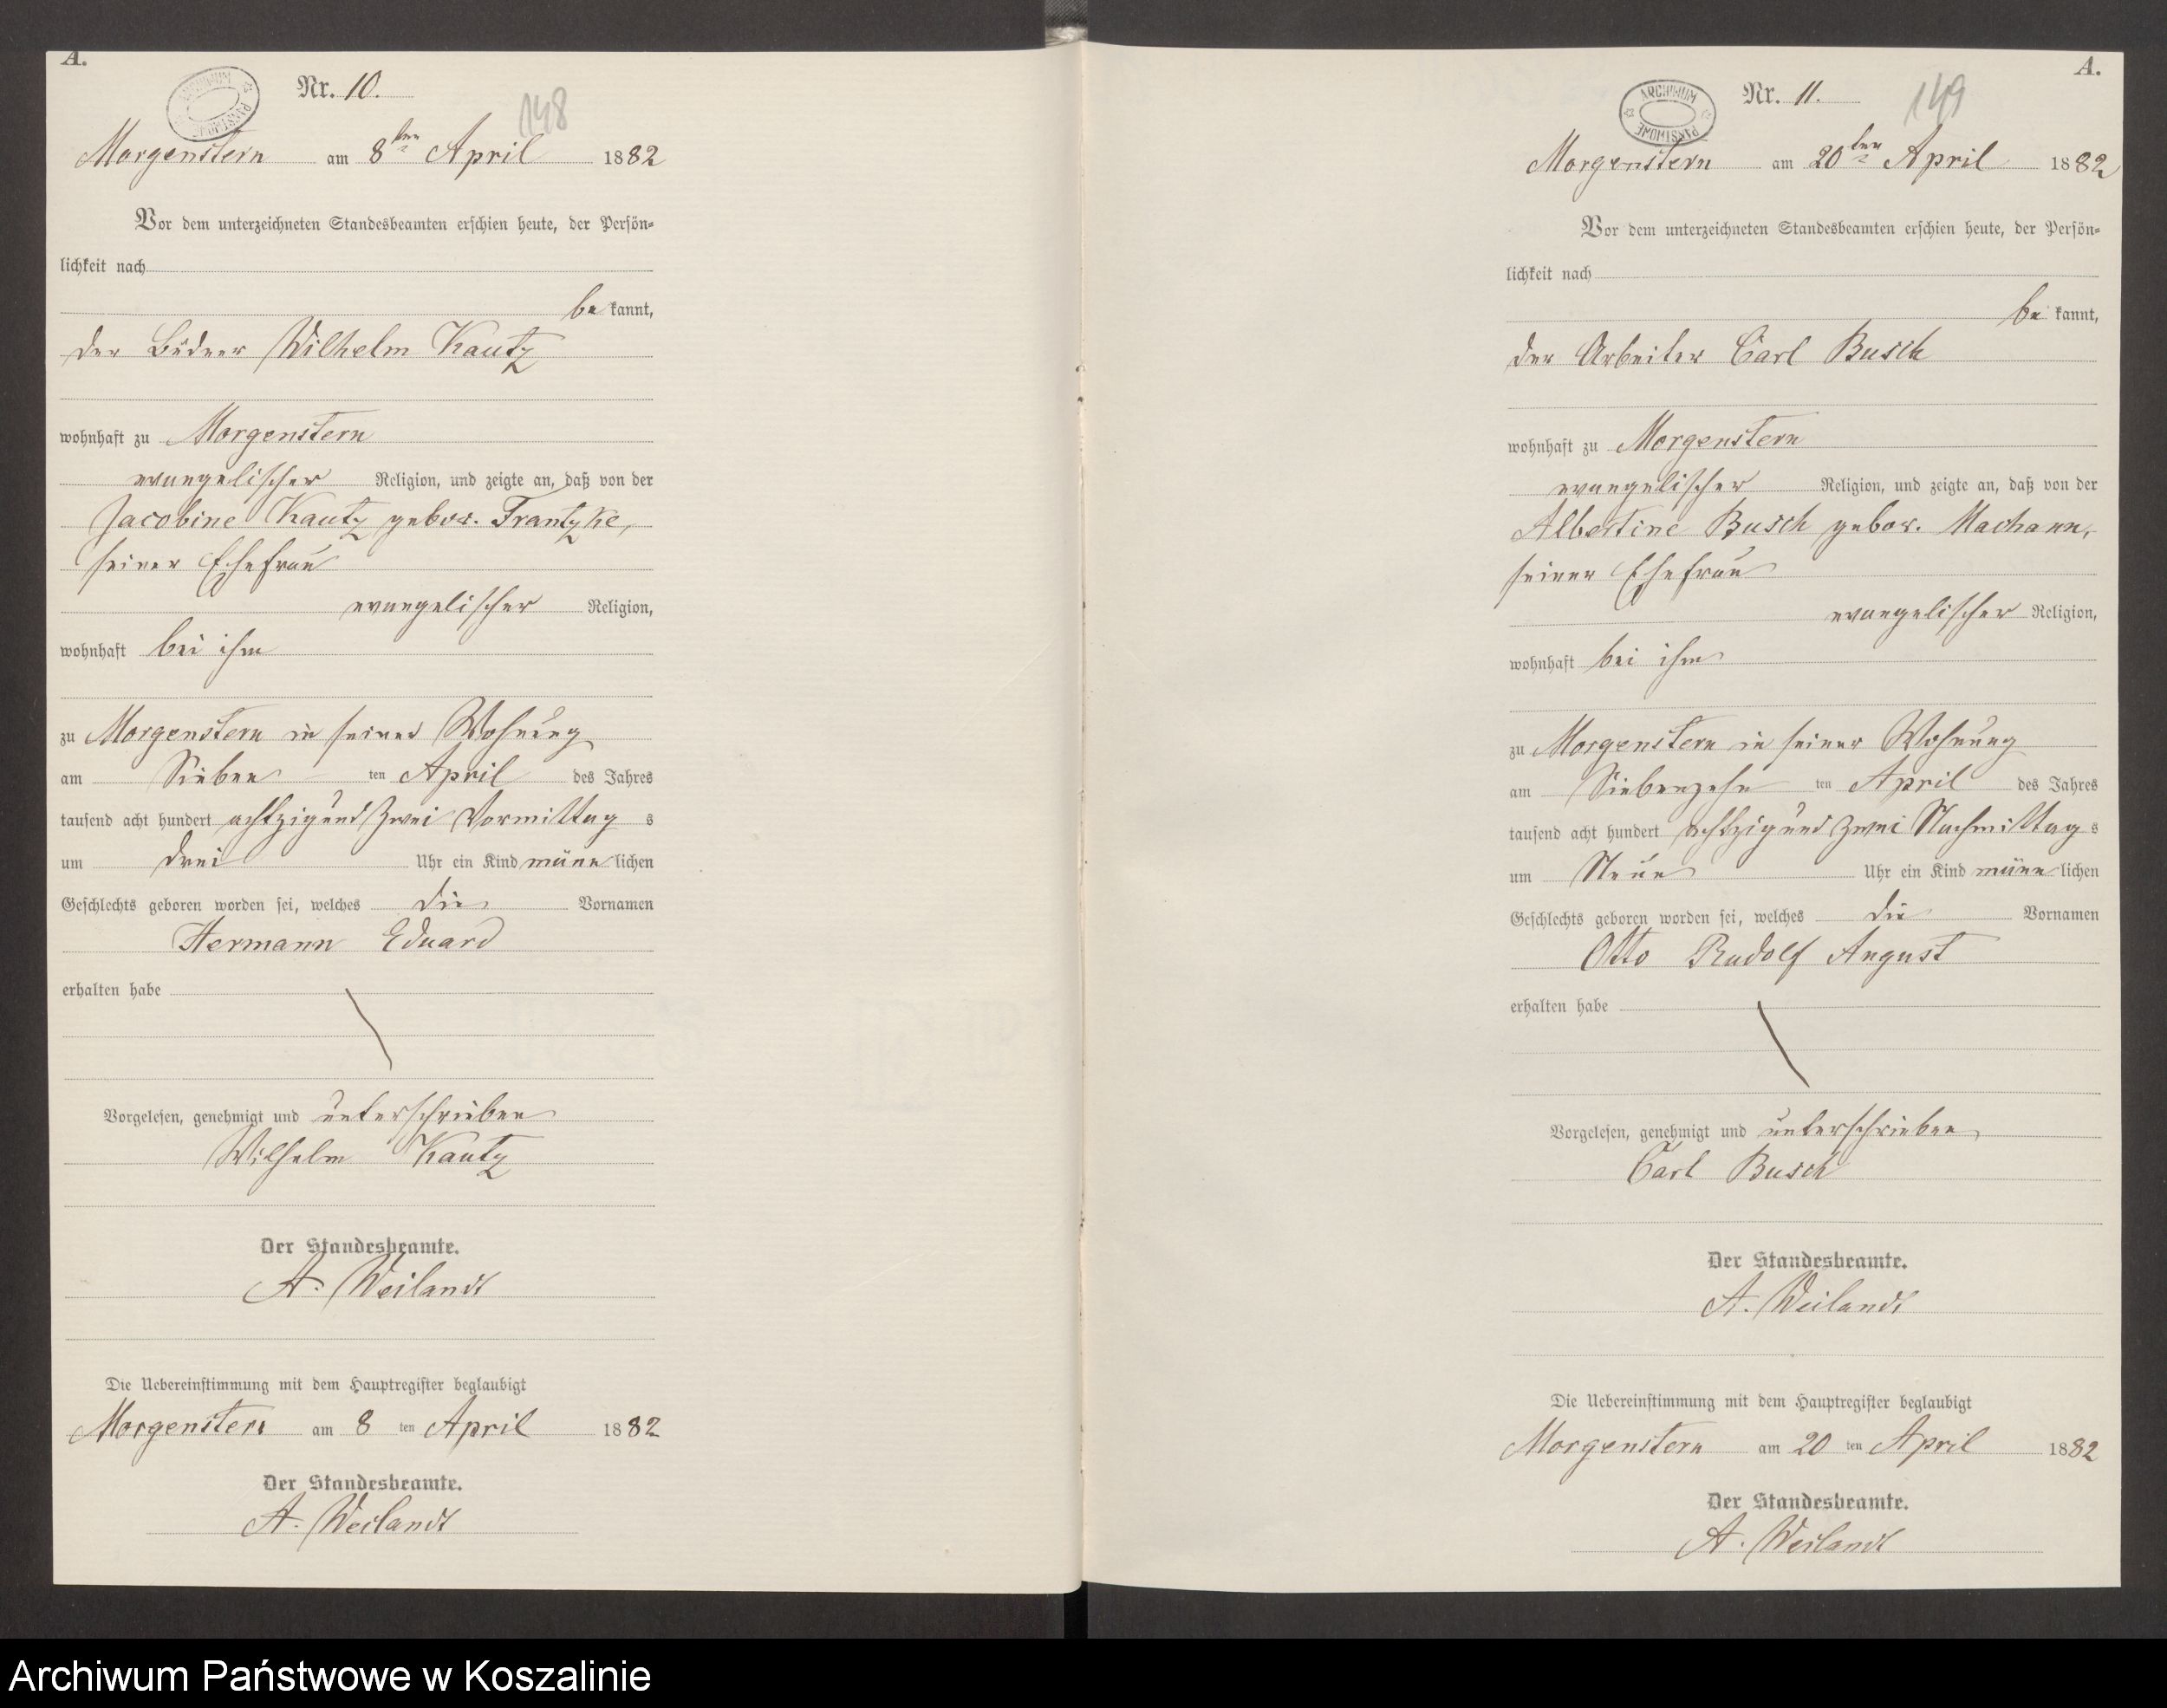 A.
Nr. 10.
148
ARCHIWUM PAŃSTWOWE
Morgenstern am 8ten April 1882
Vor dem unterzeichneten Standesbeamten erschien heute, der Persön-
lichkeit nach
be kannt,
der Büdner Wilhelm Kautz
wohnhaft zu Morgenstern
evangelischer Religion, und zeigte an, daß von der
Jacobine Kautz gebor. Trantzke,
seiner Ehefrau
evangelischer Religion,
wohnhaft bei ihm
zu Morgenstern in seiner Wohnung
am Sieben ten April des Jahres
tausend acht hundert achtzig und zwei Vormittag s
um drei Uhr ein Kind männ lichen
Geschlechts geboren worden sei, welches die Vornamen
Hermann Eduard
erhalten habe
Vorgelesen, genehmigt und unterschrieben
Wilhelm Kautz
Der Standesbeamte.
A. Weilandt
Die Uebereinstimmung mit dem Hauptregister beglaubigt
Morgenstern am 8 ten April 1882
Der Standesbeamte.
A. Weilandt
A.
Nr. 11.
149
ARCHIWUM PAŃSTWOWE
Morgenstern am 20ten April 1882
Vor dem unterzeichneten Standesbeamten erschien heute, der Persön-
lichkeit nach
be kannt,
der Arbeiter Carl Busch
wohnhaft zu Morgenstern
evangelischer Religion, und zeigte an, daß von der
Albertine Busch gebor. Machann,
seiner Ehefrau
evangelischer Religion,
wohnhaft bei ihm
zu Morgenstern in seiner Wohnung
am Siebenzehn ten April des Jahres
tausend acht hundert achtzig und zwei Nachmittag s
um Neun Uhr ein Kind männ lichen
Geschlechts geboren worden sei, welches die Vornamen
Otto Rudolf August
erhalten habe
Vorgelesen, genehmigt und unterschrieben,
Carl Busch
Der Standesbeamte.
A. Weilandt
Die Uebereinstimmung mit dem Hauptregister beglaubigt
Morgenstern am 20 ten April 1882
Der Standesbeamte.
A. Weilandt
Archiwum Państwowe w Koszalinie